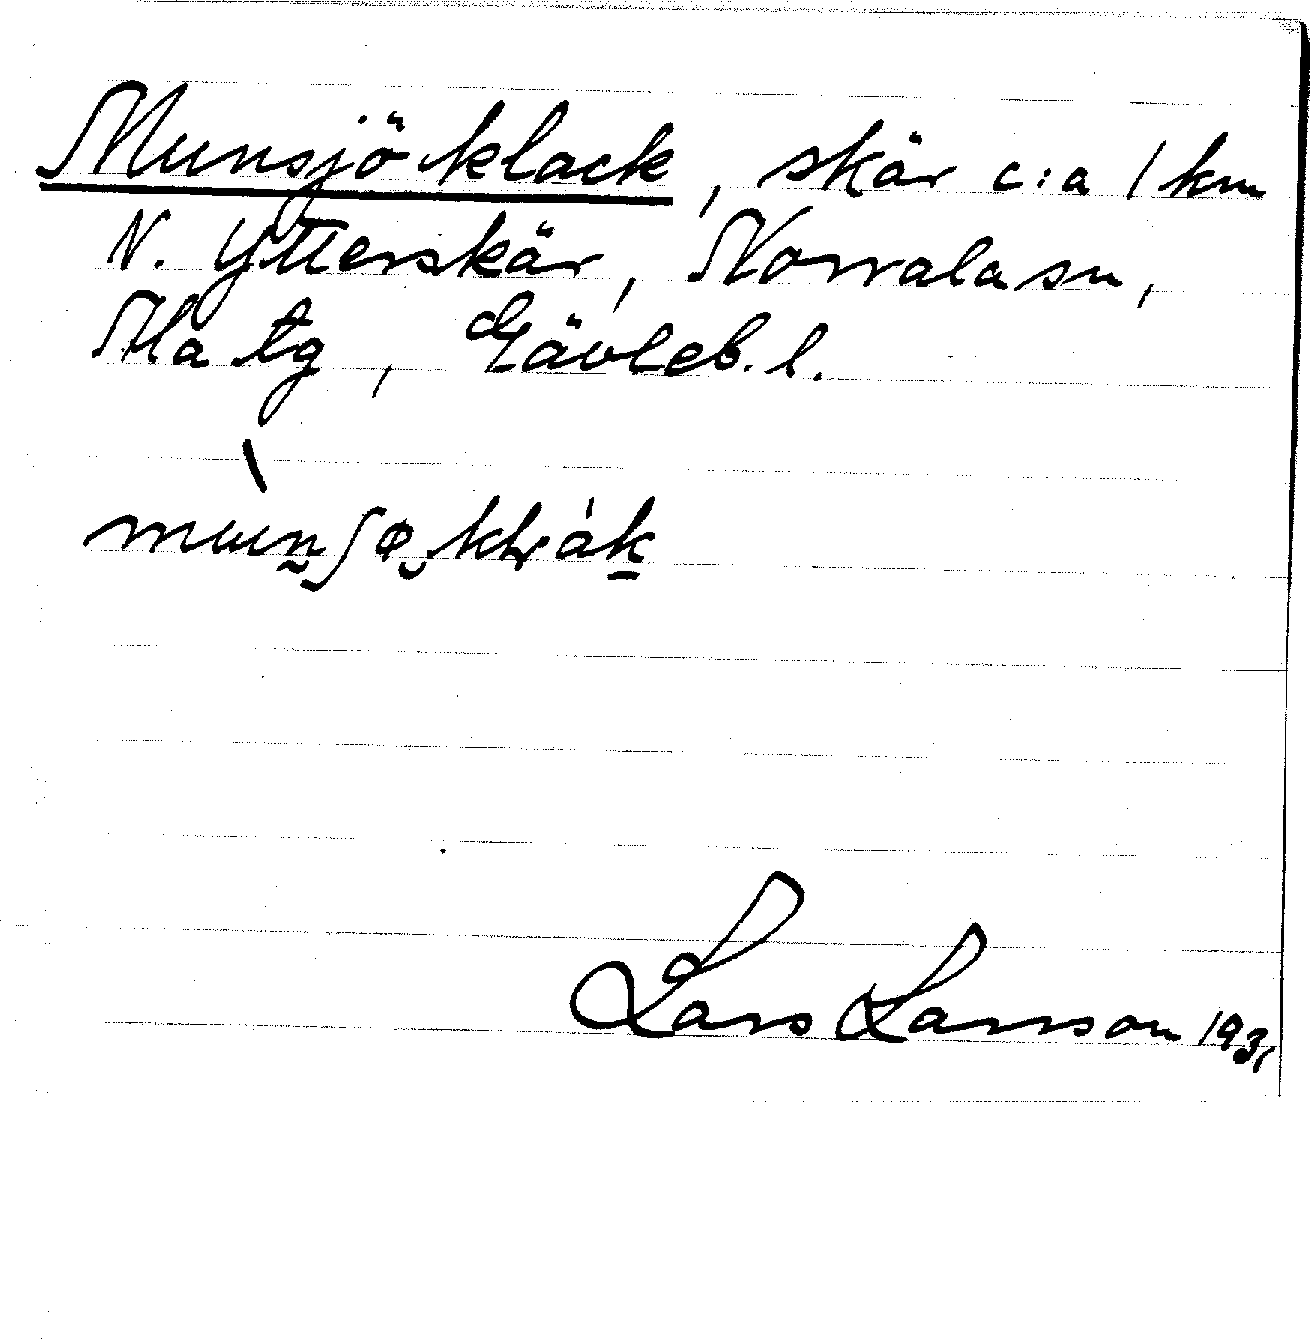 Munsjöklack, skär c:a 1 km
N. Ytterskär, Norrala sn,
Ala tg, Gävleb. l.
Lars Larsson 1931